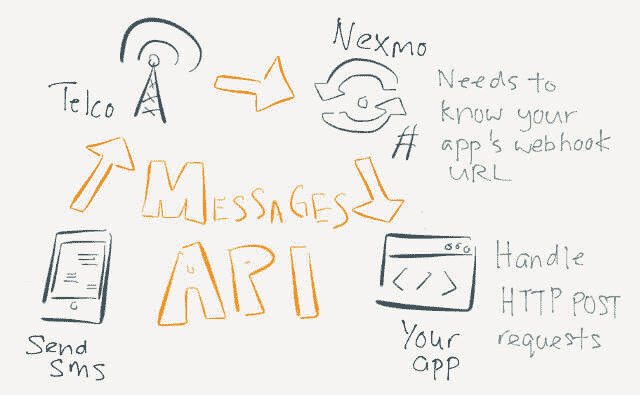 Telco
Nexmo
Needs to
know your
app's webhook
URL
#
MESSAGES
API
Send
SMS
</>
Your
app
Handle
HTTP POST
requests